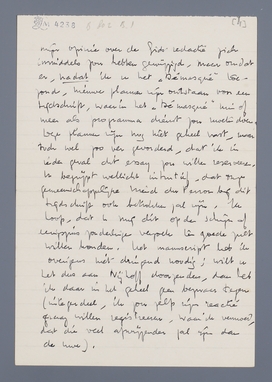 M 4253
[4]
mijn opinie over de Gids-redactie zich
inmiddels zou hebben gewijzigd, maar omdat
er, nadat ik u het "Démasqué" toe-
zond, nieuwe plannen zijn ontstaan voor een
tijdschrift, waarin het "Démasqué" min of
meer als programma dienst zou moeten doen.
Deze plannen zijn nog niet geheel vast, maar
toch wel zoo ver gevorderd, dat ik in
ieder geval dit essay zou willen reserveeren.
U begrijpt wellicht intuïtief, dat onze
gemeenschappelijke vriend du Perron bij dit
tijdschrift ook betrokken zal zijn. Ik
hoop, dat u mij dit op de schijn af
eenigszins zonderlinge verzoek ten goede zult
willen houden. Het manuscript heb ik
overigens niet dringend noodig; wilt u
het dus aan Nijhoff doorzenden, dan heb
ik daar in het geheel geen bezwaar tegen
(integendeel, ik zou zelf zijn reactie
graag willen registreeren, waar ik vermoed,
dat die veel afwijzender zal zijn dan
de uwe).